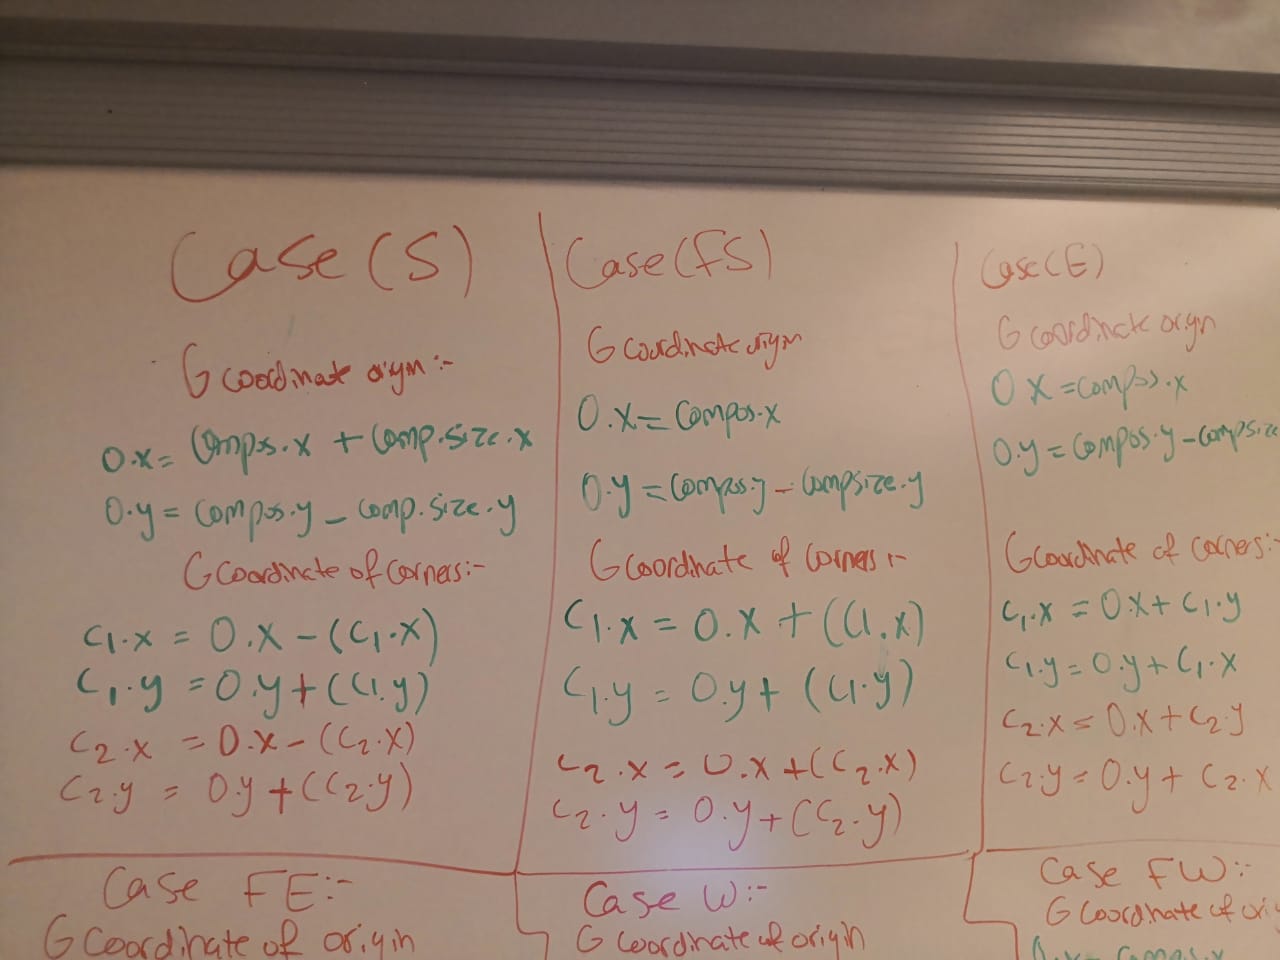 Case (S)
G coordinate origin :-
O.x = Compos.x + Comp.size.x
O.y = compos.y - comp.size.y
G coordinate of corners:-
C1.x = O.x - (C1.x)
C1.y = O.y + (C1.y)
C2.x = O.x - (C2.x)
C2.y = O.y + (C2.y)
Case (FS)
G coordinate origin
O.x = Compos.x
O.y = compos.y - compsize.y
G coordinate of corners :-
C1.x = O.x + (C1.x)
C1.y = O.y + (C1.y)
C2.x = O.x + (C2.x)
C2.y = O.y + (C2.y)
Case (E)
G coordinate origin
O X = compos.x
O.y = compos.y - compsize
G coordinate of corners:-
C1.x = O.x + C1.y
C1.y = O.y + C1.x
C2.x = O.x + C2.y
C2.y = O.y + C2.x
Case FE:-
G Coordinate of origin
Case W:-
G Coordinate of origin
Case FW:-
G Coordinate of
O.x = compos.x